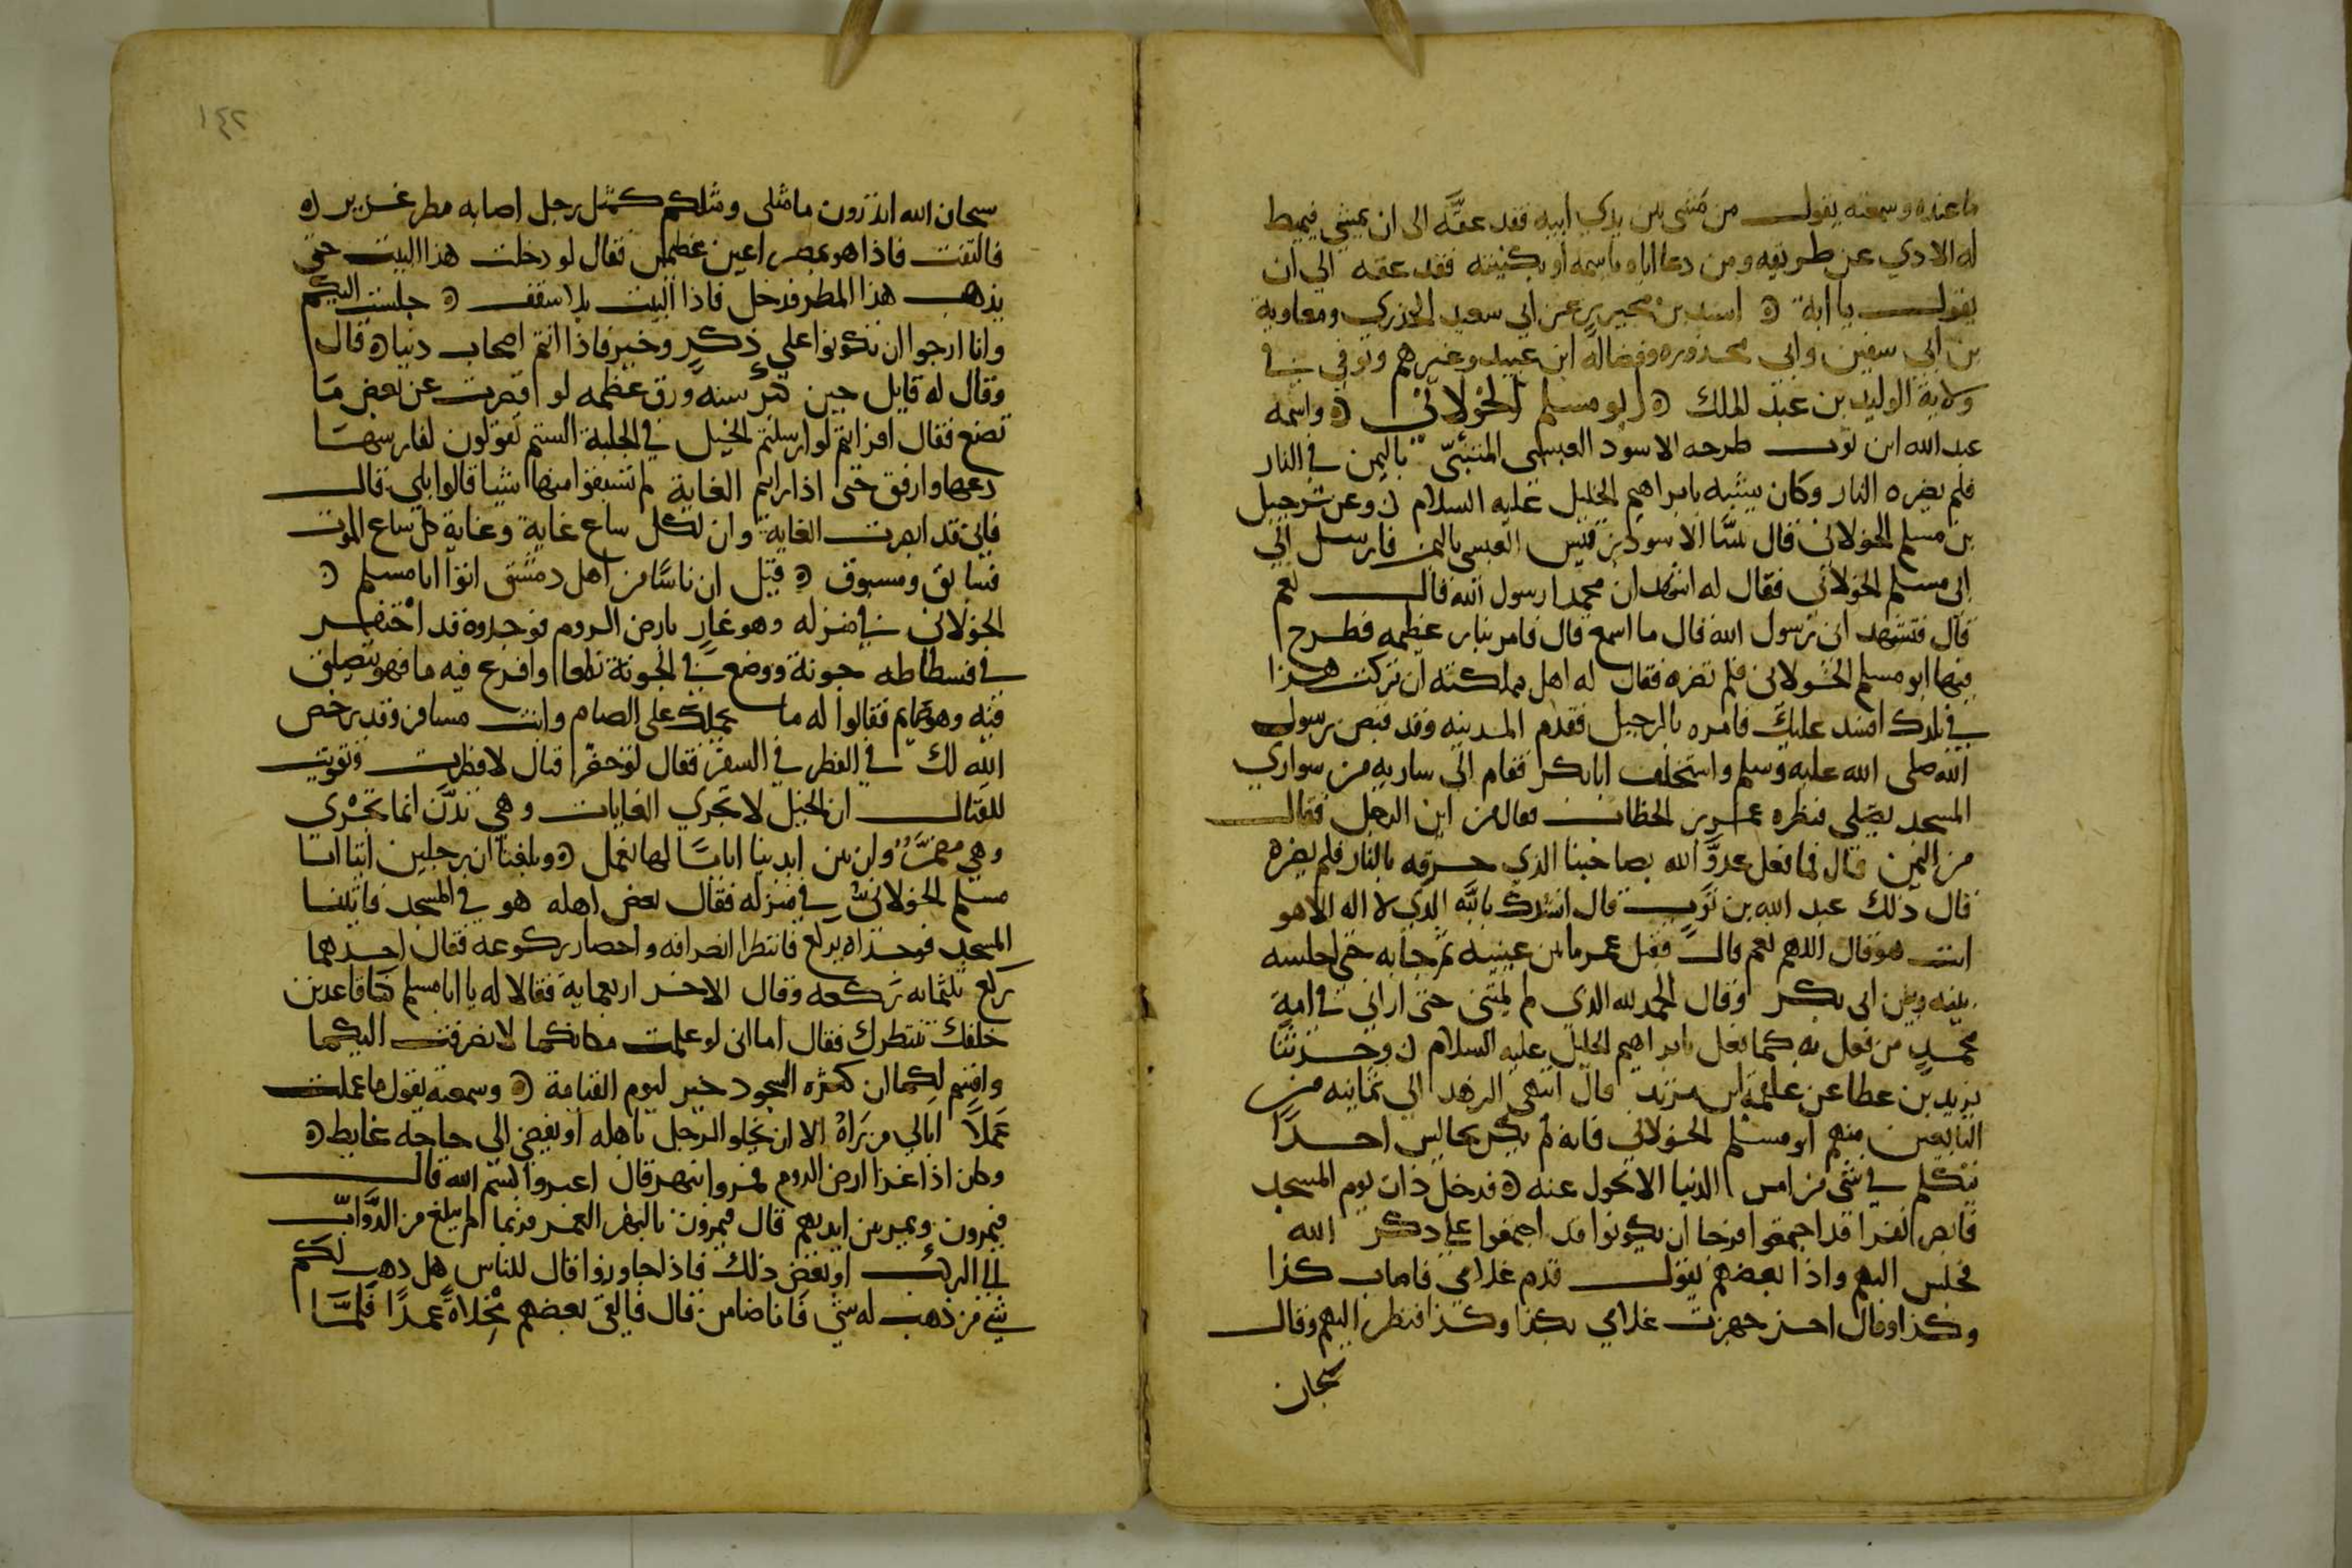 ما عنده وسمعته يقول من مشى بين يدي ابيه فقد عقَّه الى ان يمشي فيميط
له الاذي عن طريقه ومن دعا اباه باسمه او بكنيته فقد عقه الي ان
يقول يا ابة ه اسند بن محيريز عن ابي سعيد الخدري ومعاوية
بن ابي سفين وابي محذوره وفضالة ابن عبيد وغيرهم وتوفي في
ولاية الوليد بن عبد الملك ه ابو مسلم الخولاني ه واسمه
عبد الله ابن ثوب طرحه الاسود العبسي المتنبّي باليمن في النار
فلم يضره النار وكان يشبه بابراهيم الخليل عليه السلام ن وعن شرحبيل
بن مسلم الخولاني قال بينَّا الاسود بن قيس العبسي باليمن فارسل الي
ابي مسلم الخولاني فقال له اتشهد ان محمدا رسول الله قال نعم
قال فتشهد اني رسول الله قال ما اسمع قال فامر بنار عظيمه فطرح
فيها ابو مسلم الخولاني فلم تضره فقال له اهل مملكته ان تركت هذا
في بلدك افسد عليك فامره بالرحيل فقدم المدينه وقد قبض رسول
الله صلى الله عليه وسلم واستخلف ابا بكر فقام الي ساريه من سواري
المسجد يصلي فنظره عمر بن الخطاب فقال من اين الرجل فقال
من اليمن قال فما فعل عدوُّ الله بصاحبنا الذي حرقه بالنار فلم يضره
قال ذلك عبد الله بن ثوب قال انشدك بالله الذي لا اله الا هو
انت هو قال اللهم نعم قال فقبل عمر ما بين عينيه ثم جا به حتى اجلسه
بينه وبين ابى بكر وقال الحمد لله الذي لم يمتني حتى اراني في امة
محمد من فعل به كما فعل بابراهيم الخليل عليه السلام ن وحدثنا
يزيد بن عطا عن علقمة ابن مرثد قال انتهى الزهد الي ثمانيه من
التابعين منهم ابو مسلم الخولاني فانه لم يكن يجالس احدًا
يتكلم في شي من امر الدنيا الا تحول عنه ه فدخل ذات يوم المسجد
فابصر نفرا قد اجتمعوا فرجا ان يكونوا قد اجتمعوا علي ذكر الله
فجلس اليهم واذا بعضهم يقول قدم غلامي فاصاب كذا
وكذا وقال اخر جهزت غلامي بكذا وكذا فنظر اليهم وقال
سبحان
١٤٢
سبحان الله اتدرون ما مثلى ومثلكم كمثل رجل اصابه مطر غزير ه
فالتفت فاذا هو بمصراعين عظيمين فقال لو دخلت هذا البيت حتى
يذهب هذا المطر فدخل فاذا البيت بلا سقف ه جلست اليكم
وانا ارجوا ان تكونوا علي ذكرٍ وخيرٍ فاذا انتم اصحاب دنيا ه قال
وقال له قايل حين كبر سنه ورق عظمه لو اقصرت عن بعض مَا
تصنع فقال افرايتم لو ارسلتم الخيل في الحلبة الستم تقولون لفارسهَا
دعها وارفق حتى اذا رايتم الغاية لم تستبقوا منها شيا قالوا بلي قال
فاني قد ابصرت الغاية وان لكل ساع غاية وغاية كل ساع الموت
فسابق ومسبوق ه قيل ان ناسًا من اهل دمشق اتوا ابا مسلم ه
الخولاني في منزله وهو غازٍ بارض الروم فوجدوه قد احتفر
في فسطاطه جونة ووضع في الجونة نطعا وافرغ فيه ما فهو يتصلق
فيه وهو صايم فقالوا له ما يحملك على الصيام وانت مسافر وقد رخص
الله لك في الفطر في السفر فقال لو حضر قتال لافطرت وتقويت
للقتال ان الخيل لا تجري الغايات وهي بدَّنٌ انما تجْري
وهي مضمرَّه وان بين ايدينا ايامًا لها نعمل ه وبلغنا ان رجلين اتيا ابا
مسلم الخولاني في منزله فقال بعض اهله هو في المسجد فاتيا
المسجد فوجداه يركع فانتظرا انصرافه واحصا ركوعه فقال احدهما
ركع ثلثمايه ركعه وقال الاخر اربعماية فقالا له يا ابا مسلم كنا قاعدين
خلفك ننتظرك فقال اما اني لو علمت مكانكما لانصرفت اليكما
واقسم لكما ان كثره السجود خير ليوم القيامة ه وسمعته يقول ما عملت
عَملاً ابالي من رَآهُ الا ان يخلو الرجل باهله او يفضي الي حاجه غايط ه
وكان اذا غزا ارض الروم فمروا بنهر قال اعبروا بسم الله قال
فيمرون ويمر بين ايديهم قال فيمرون بالنهر الغمر فربما لم يبلغ من الدوَّابّ
الا الي الركب او بعض ذلك فاذا جاوزوا قال للناس هل ذهب لكم
شي من ذهب له شي فانا ضامن قال فالقى بعضهم مْخِلاةً عمدًا فلمَّا